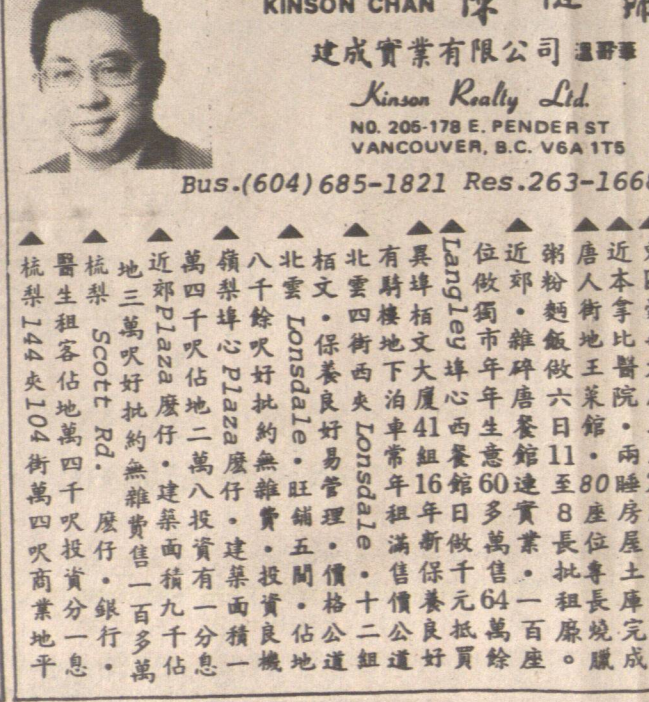 KINSON CHAN 陳
建成實業有限公司 溫哥華
Kinson Realty Ltd.
NO. 205-178 E. PENDER ST
VANCOUVER, B.C. V6A 1T5
Bus.(604)685-1821 Res.263-166
▲近本拿比醫院・兩睡房屋土庫完成
▲唐人街地王菜館・80座位專長燒臘
粥粉麵飯做六日11至8長批租廉。
▲近郊・雜碎唐餐館連實業・一百座
位做獨市年年生意60多萬售64萬餘
▲Langley埠心西餐館日做千元抵買
▲異埠栢文大廈41組16年新保養良好
有騎樓地下泊車常年租滿售價公道
▲北雲四街西夾Lonsdale・十二組
栢文・保養良好易管理・價格公道
▲北雲 Lonsdale・旺鋪五間・佔地
八千餘呎好批約無雜費・投資良機
▲嶺梨埠心Plaza麽仔・建築面積一
萬四千呎佔地二萬八投資有一分息
▲近郊Plaza麽仔・建築面積九千佔
地三萬呎好批約無雜費售一百多萬
▲梳梨 Scott Rd. 麽仔・銀行・
醫生租客佔地萬四千呎投資分一息
▲梳梨144夾104街萬四呎商業地平